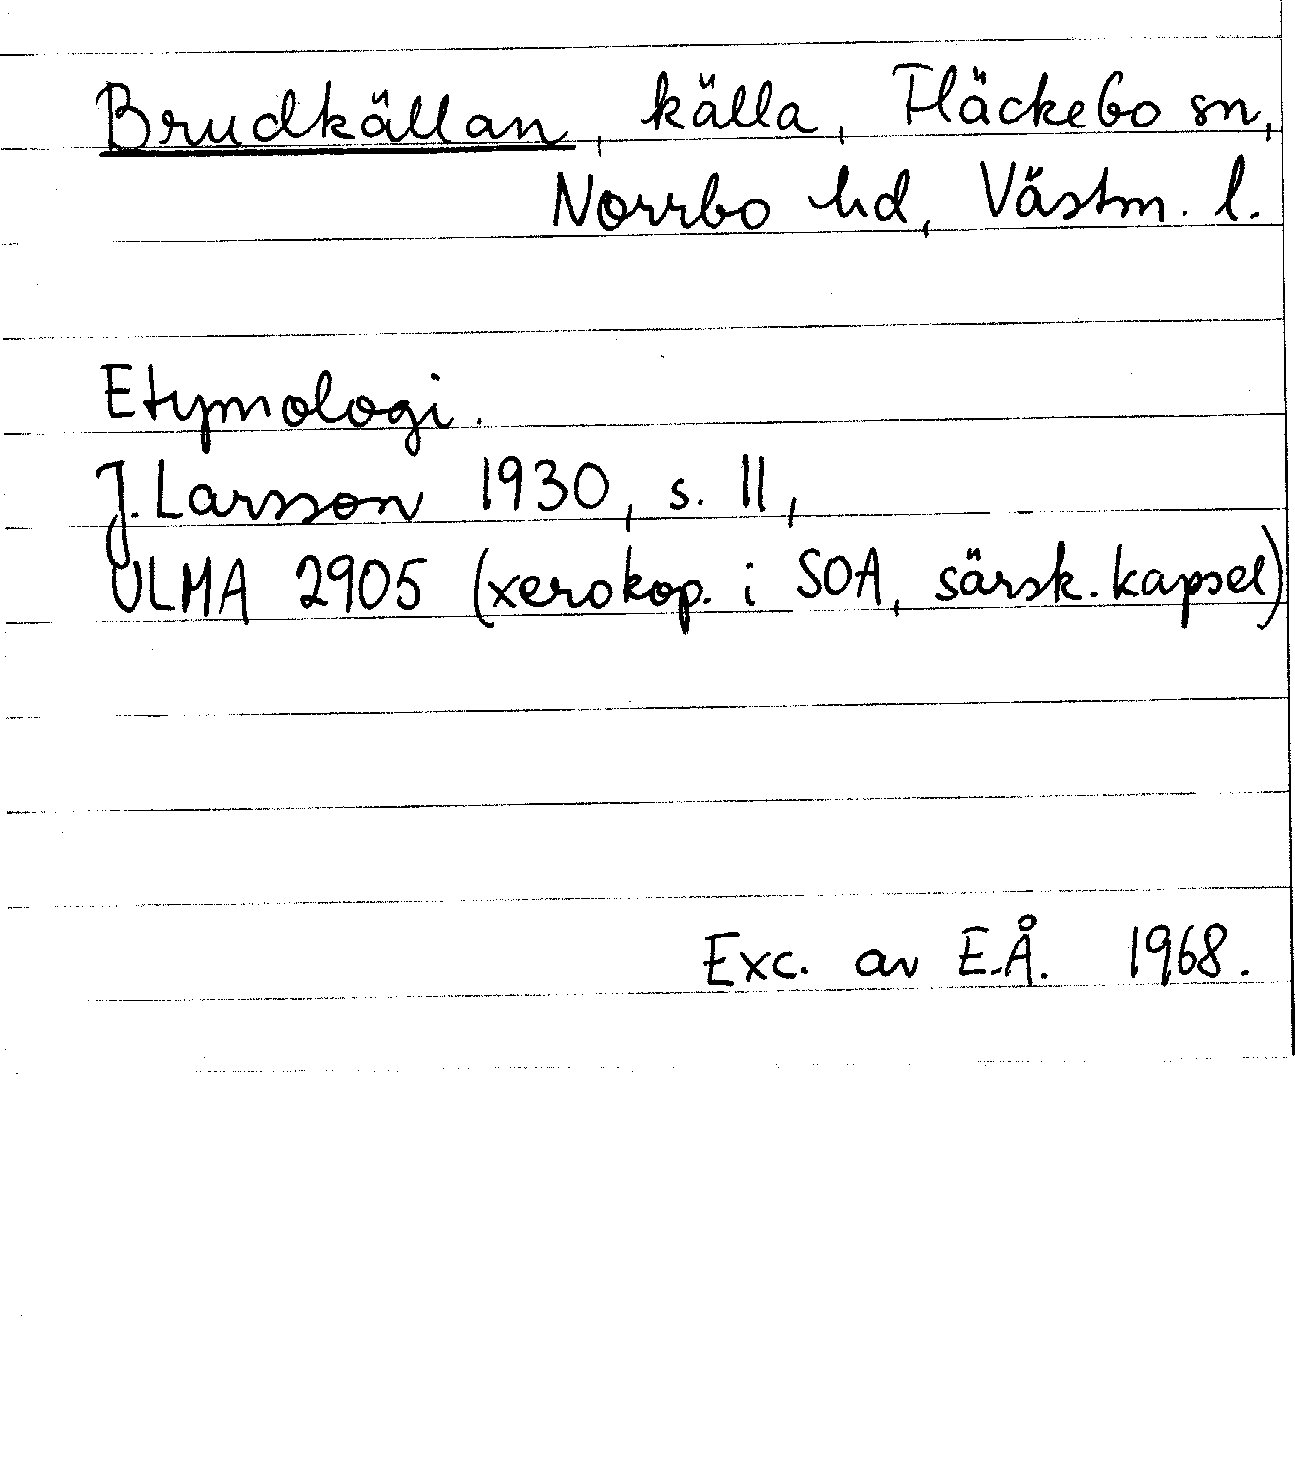 Brudkällan, källa, Fläckebo sn,
Norrbo hd, Västm. l.
Etymologi.
J. Larsson 1930, s. 11,
ULMA 2905 (xerokop. i SOA, särsk. kapsel)
Exc. av E.Å. 1968.